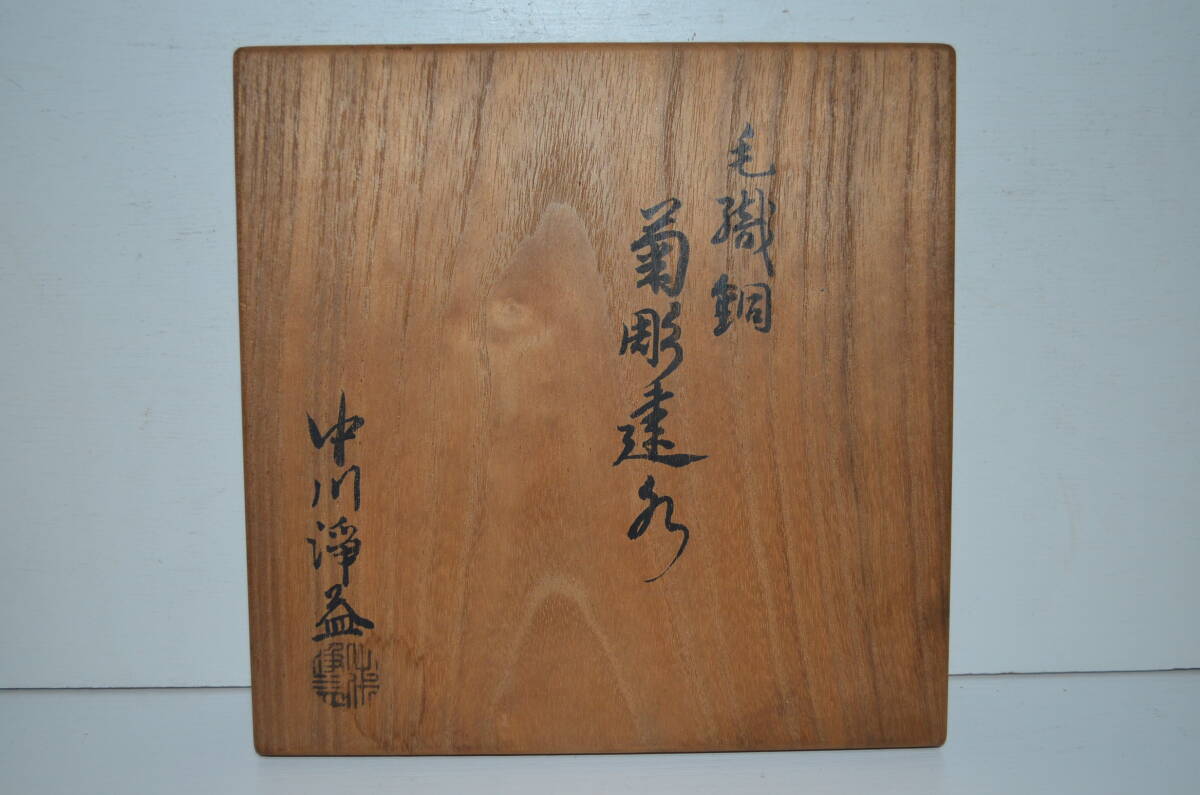 毛織銅
菊彫建水
中川淨益